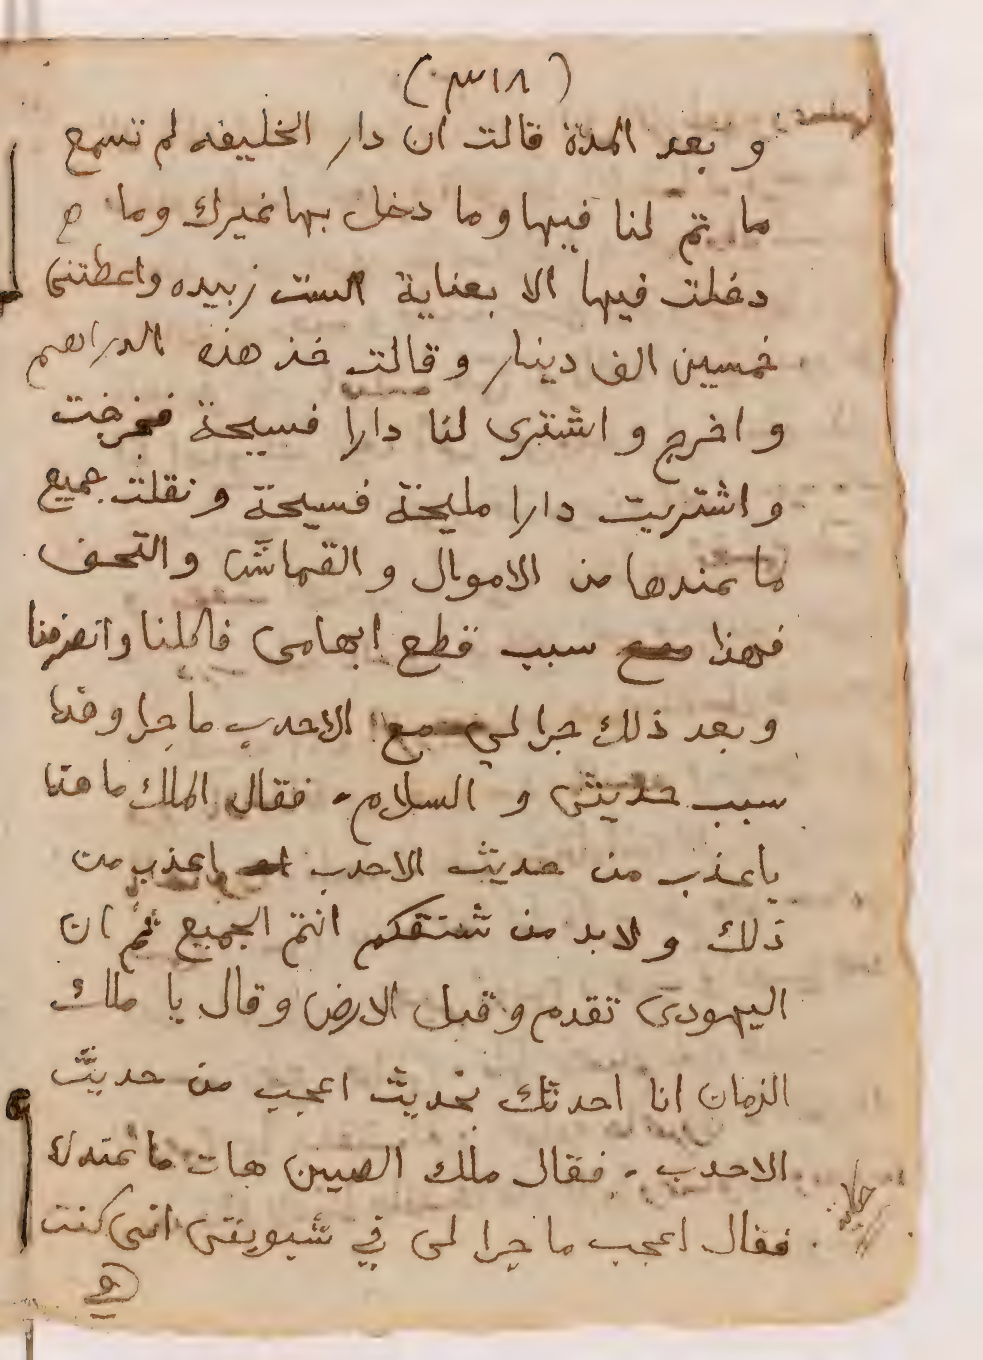 (٣١٨)
و بعد المدة قالت ان دار الخليفه لم تسمع
ما تم لنا فيها وما دخل بها غيرك وما
دخلت فيها الا بعناية الست زبيده واعطتنى
خمسين الف دينار و قالت خذ هذه الدراهم
و اخرج و اشترى لنا دارا فسيحة فخرجت
و اشتريت دارا مليحة فسيحة و نقلت جميع
ما عندها من الاموال و القماش والتحف
فهذا سبب قطع ابهامى فاكلنا وانصرفنا
و بعد ذلك جرا لي مع الاحدب ما جرا وهذا
سبب حديثى و السلام . فقال الملك ما هذا
باعذب من حديث الاحدب اعذب من
ذلك و لابد من شنقكم انتم الجميع ثم ان
اليهودى تقدم و قبل الارض و قال يا ملك
الزمان انا احدثك بحديث اعجب من حديث
الاحدب . فقال ملك الصين هات ما عندك
فقال اعجب ما جرا لى في شبوبيتى انى كنت
حكاية